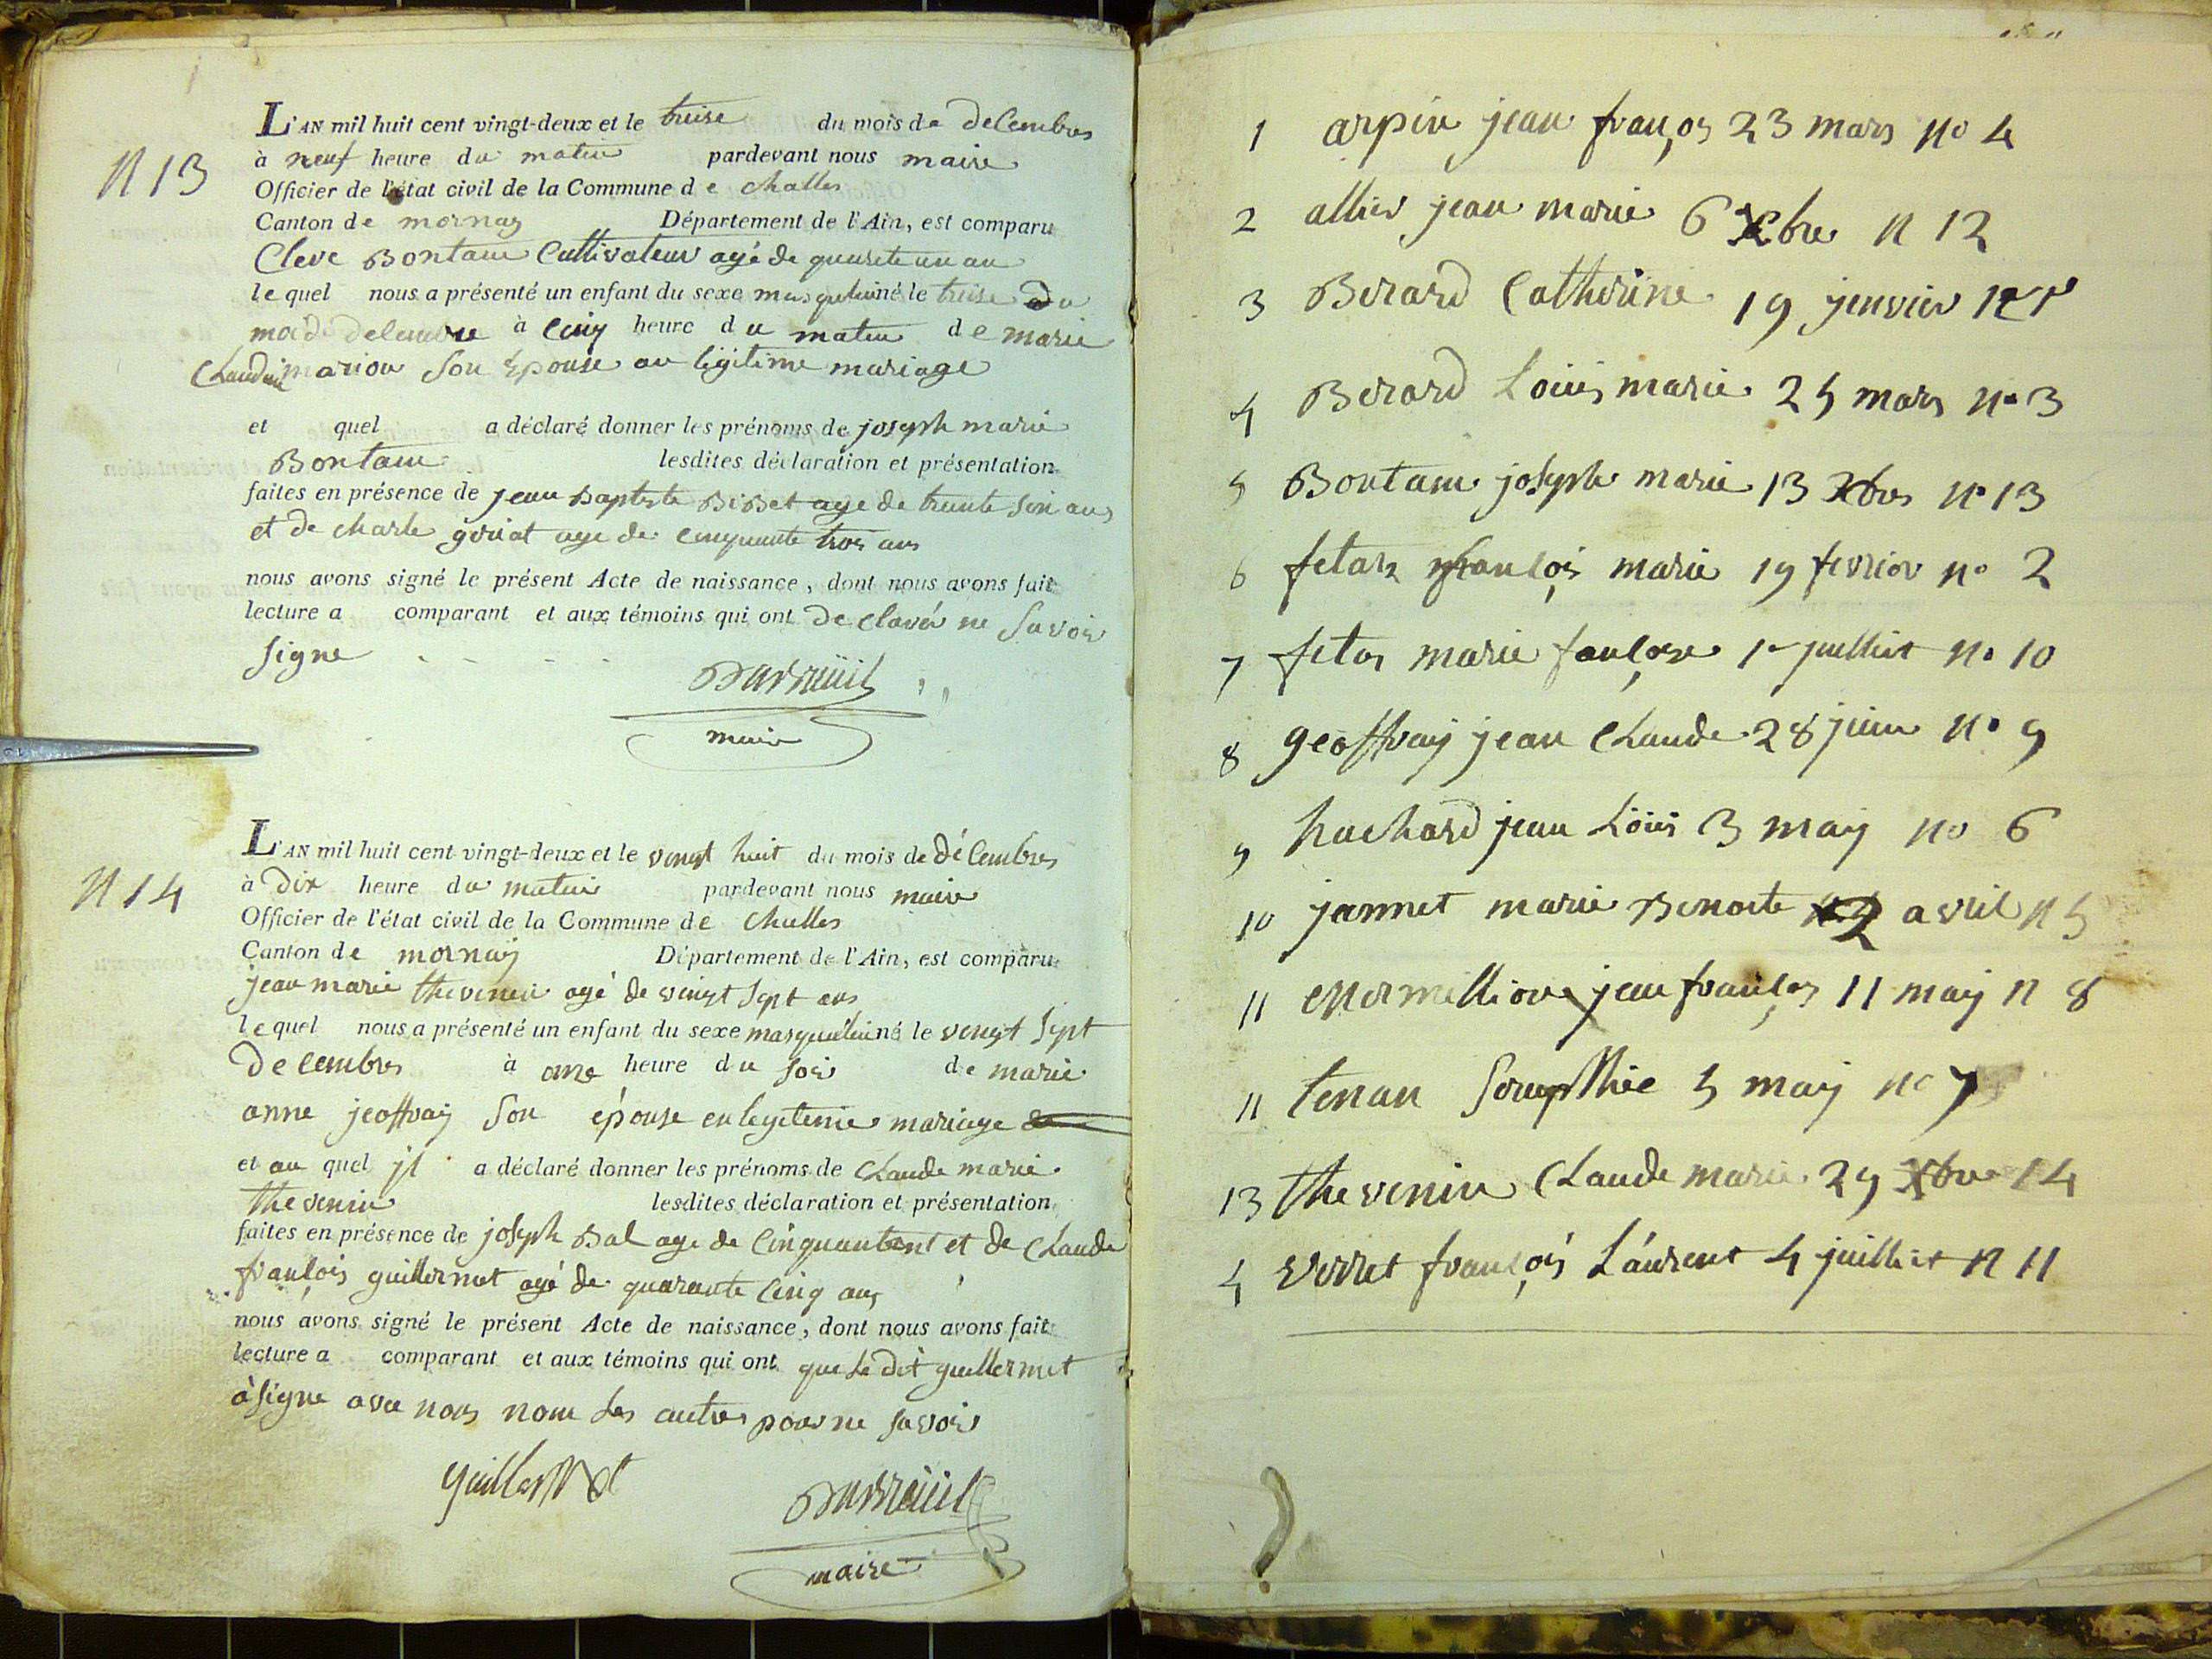 N 13
L'AN mil huit cent vingt-deux et le treise du mois de decembres
à neuf heure du matin pardevant nous maire
Officier de l'état civil de la Commune de challes
Canton de mornay Département de l'Ain, est comparu
Bontam Cultivateur agé de quarete un an
le quel nous a présenté un enfant du sexe né le treise du
decembre à cinq heure du matin de marie
marion son epouse legitime mariage
et quel a déclaré donner les prénoms de joseph marie
Bontam lesdites déclaration et présentation
faites en présence de jean Baptiste age de trente ans
et de charle goriat age de cinquante trois ans
nous avons signé le présent Acte de naissance, dont nous avons fait
lecture a comparant et aux témoins qui ont declaré ne savoir
signe
maire
N 14
L'AN mil huit cent vingt-deux et le vingt huit du mois de décembres
à dix heure du matin pardevant nous maire
Officier de l'état civil de la Commune de challes
Canton de mornay Département de l'Ain, est comparu
jean marie thevenin agé de vingt sept ans
le quel nous a présenté un enfant du sexe né le vingt sept
decembres à onze heure du soir de marie
anne jeoffray son épouse en legitime mariage
et au quel jl a déclaré donner les prénoms de Claude marie
thevenin lesdites déclaration et présentation
faites en présence de joseph Bal age de et de Claude
françois guillermet agé de quarante cinq ans
nous avons signé le présent Acte de naissance, dont nous avons fait
lecture a comparant et aux témoins qui ont que le dit guillermet
à signe avec nous nom les autres pour ne savoir
guillermet
maire
1 arpin jean françois 23 mars no 4
2 allier jean marie 6 Xbre n 12
3 Berard Catherine 19 jenvier
4 Berard Louis marie 25 mars no 3
5 Bontam joseph marie 13 Xbres no 13
6 fetas françois marie 19 fevrier no 2
7 fetas marie 1r juillet no 10
8 geoffray jean Claude 28 juin no 9
9 huchard jean Louis 3 may no 6
10 jannet marie Benoite 2 avril n 5
11 jean françois 11 may n 8
11 tenan 5 may no 7
13 thevenin Claude marie 29 Xbre 14
4 verret françois Laurent 4 juillet n 11
?